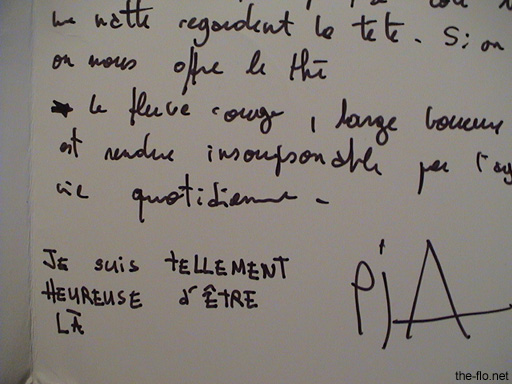 regardent la tete. Si on
on nous offre le thé
le fleuve rouge, large
est rendue insoupsonable par
vie quotidienne.
JE suis tELLEMENT
HEUREUSE d'ÊtRE
LÀ
PjA
the-flo.net